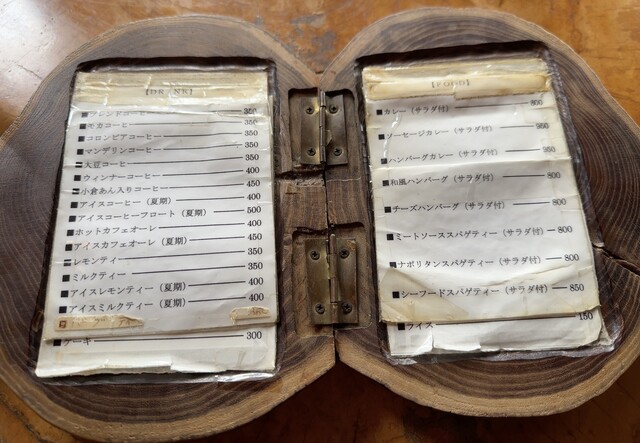 【DRINK】
■ブレンドコーヒー 350
■モカコーヒー 350
■コロンビアコーヒー 350
■マンデリンコーヒー 350
■大豆コーヒー 350
■ウィンナーコーヒー 400
■小倉あん入りコーヒー 450
■アイスコーヒー（夏期） 400
■アイスコーヒーフロート（夏期） 500
■ホットカフェオーレ 400
■アイスカフェオーレ（夏期） 450
■レモンティー 350
■ミルクティー 350
■アイスレモンティー（夏期） 400
■アイスミルクティー（夏期） 400
■ケーキ 300
【FOOD】
■カレー（サラダ付） 800
■ソーセージカレー（サラダ付） 950
■ハンバーグカレー（サラダ付） 950
■和風ハンバーグ（サラダ付） 800
■チーズハンバーグ（サラダ付） 800
■ミートソーススパゲティー（サラダ付） 800
■ナポリタンスパゲティー（サラダ付） 800
■シーフードスパゲティー（サラダ付） 850
■ライス 150